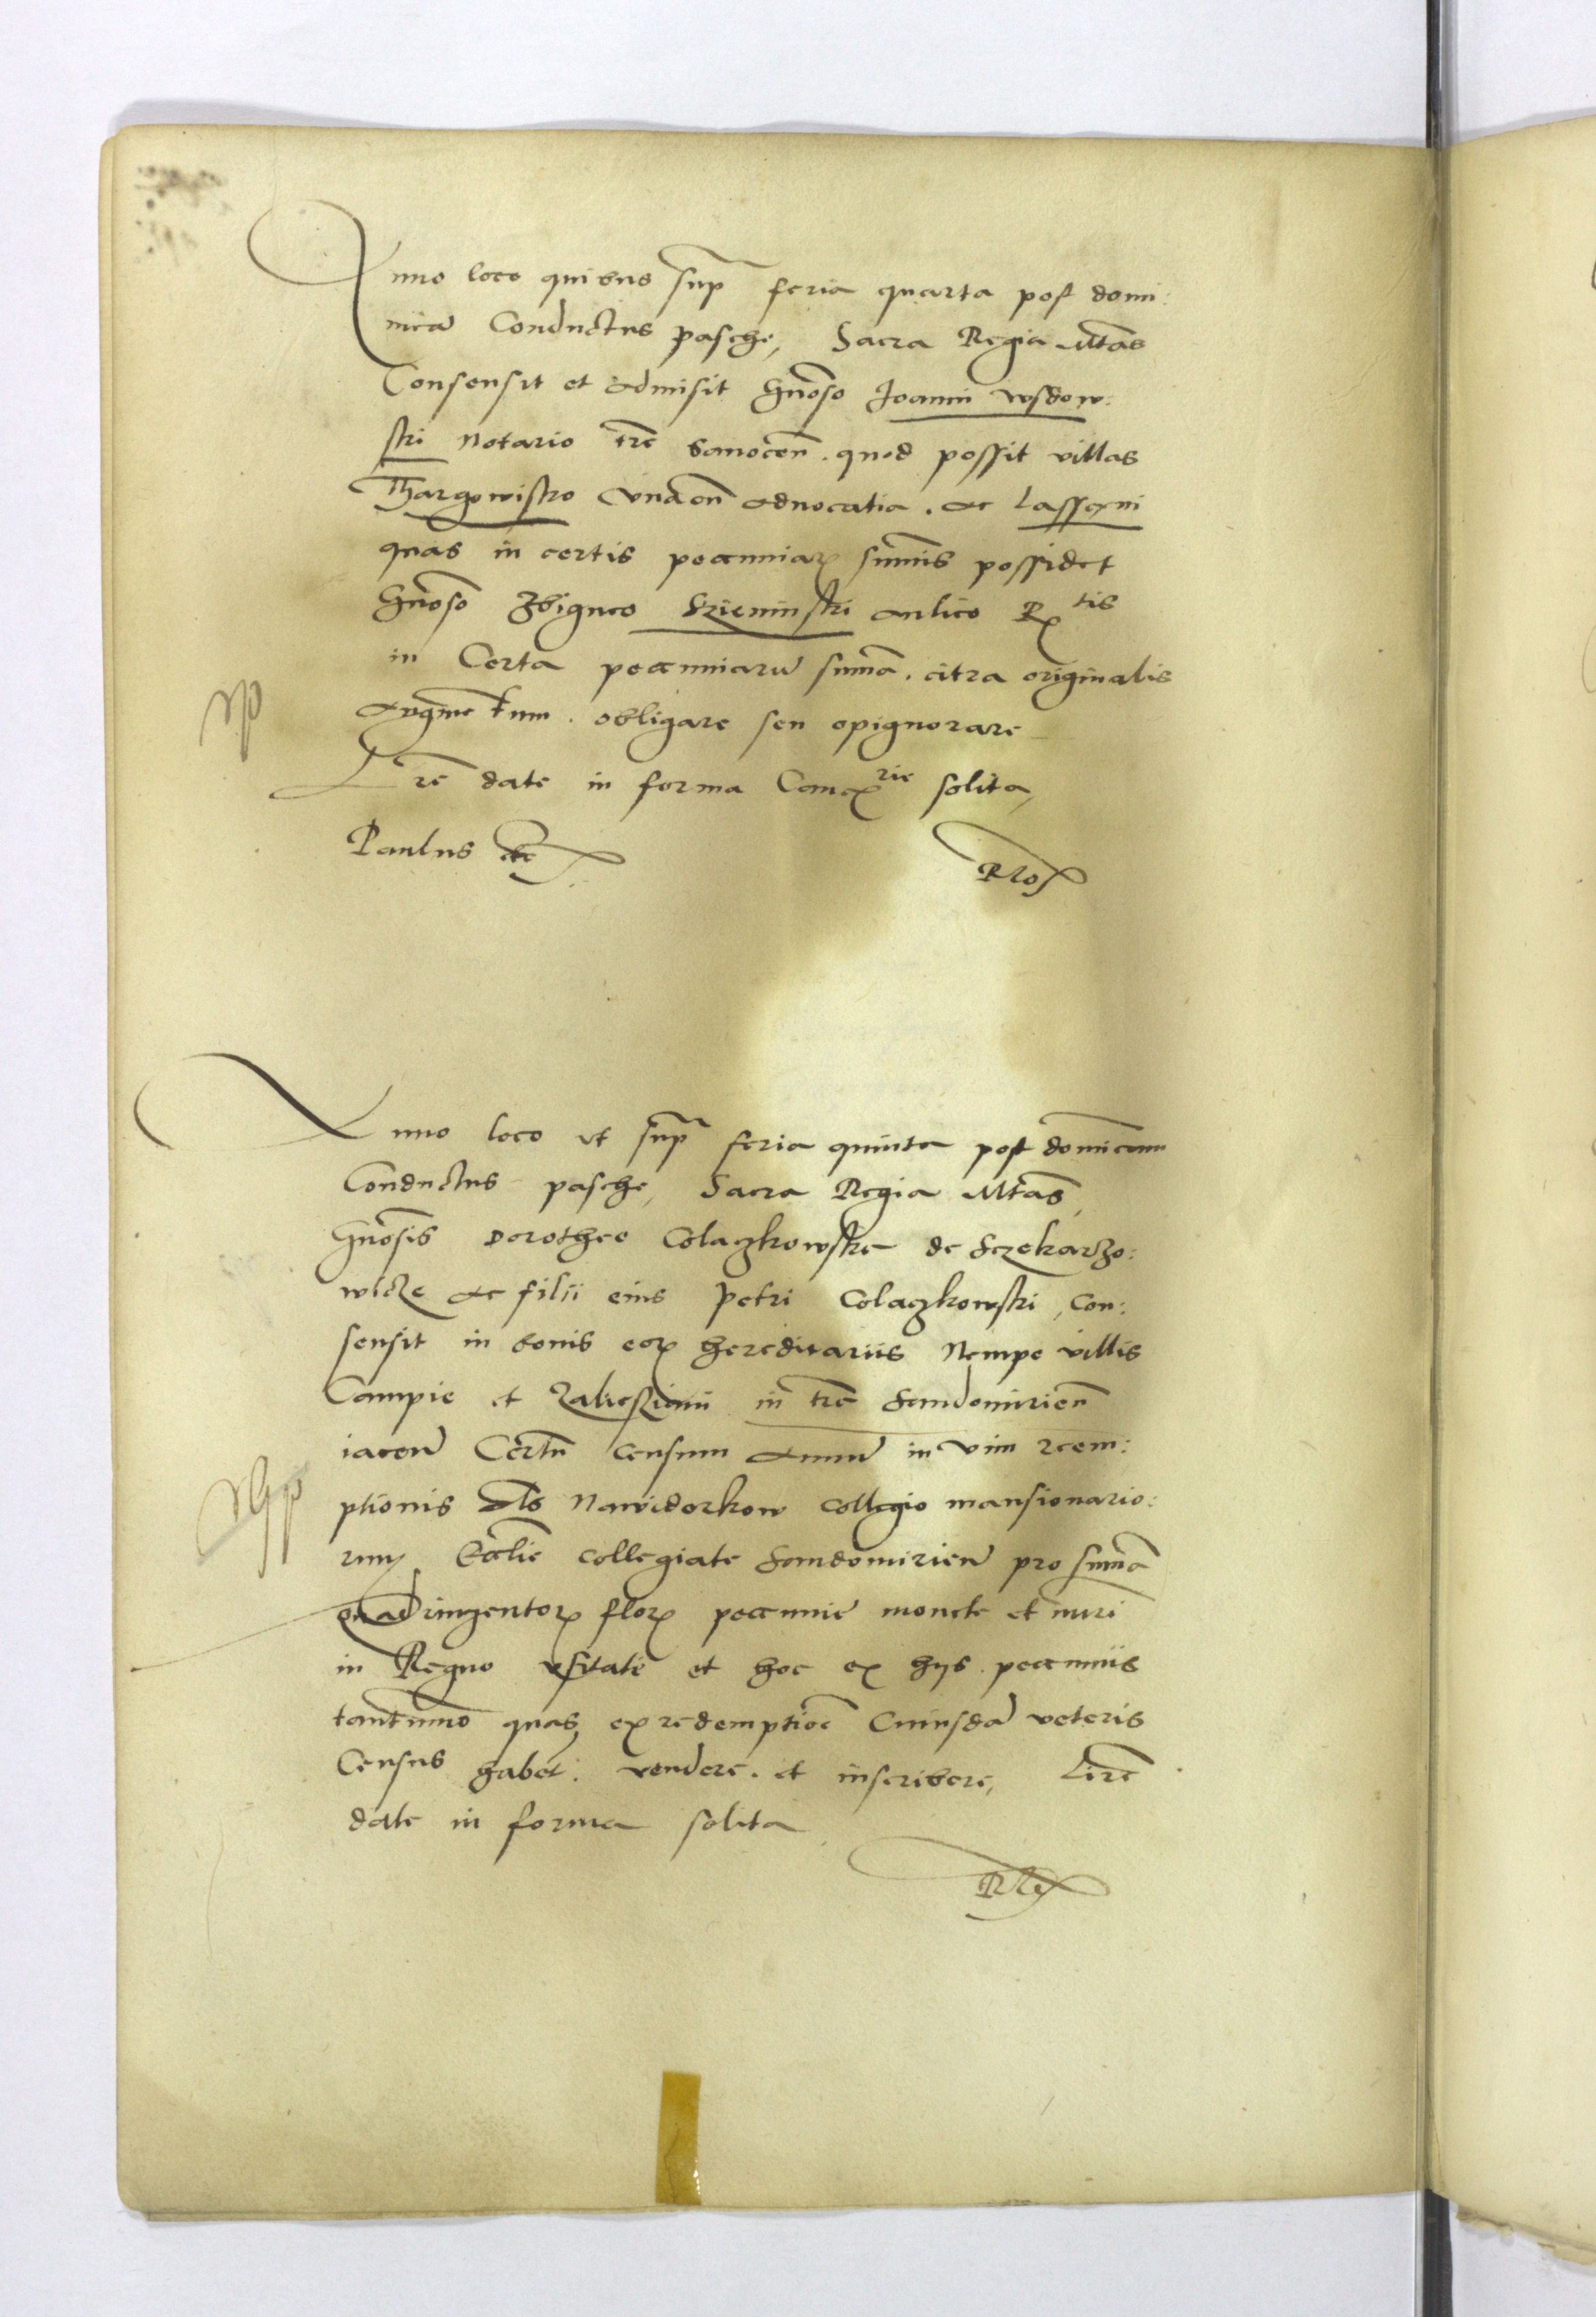 Anno loco quibus sup̃ feria quarta post domi:
nicã Conductus pasche, Sacra Regia Mtãs
Consensit et admisit Gñoso Joanni Wsdow:
ski Notario trẽ Sanoceñ. quod possit villas
Thargowisko Vnacũ aduocatia. ac
quas in certis pecuniarꝫ sum̃is possidet
Gñoso Zbigneo Szieninski aulico Rtis
in Certa pecuniarũ sum̃a. citra originalis
augmẽtum. obligare seu opignorare
Lrẽ date in forma Cancrie solita,
Paulus etc

Anno loco vt sup̃ feria quinta post dom̃icam
Conductus pasche, Sacra Regia Mtãs,
Gñosis Dorothee Colaczkowska de Sczekarzo:
wicze ac filii eius Petri Colaczkowski, Con:
sensit in bonis eorꝫ hereditariis Nempe villis
Campie et in trẽ Sandomirieñ
iaceñ Certũ censum annuũ in vim reem:
ptionis als Nawiderkow Collegio mansionario:
rum Ecclĩe Collegiate Sandomirieñ pro sum̃a
quadringentorꝫ florꝫ pecunie monete et nũri
in Regno vsitate et hoc ex hys pecuniis
tantum̃o quas ex redemptiõe Cuiusdã veteris
Census habet. vendere. et inscribere, Lrẽ
date in forma solita